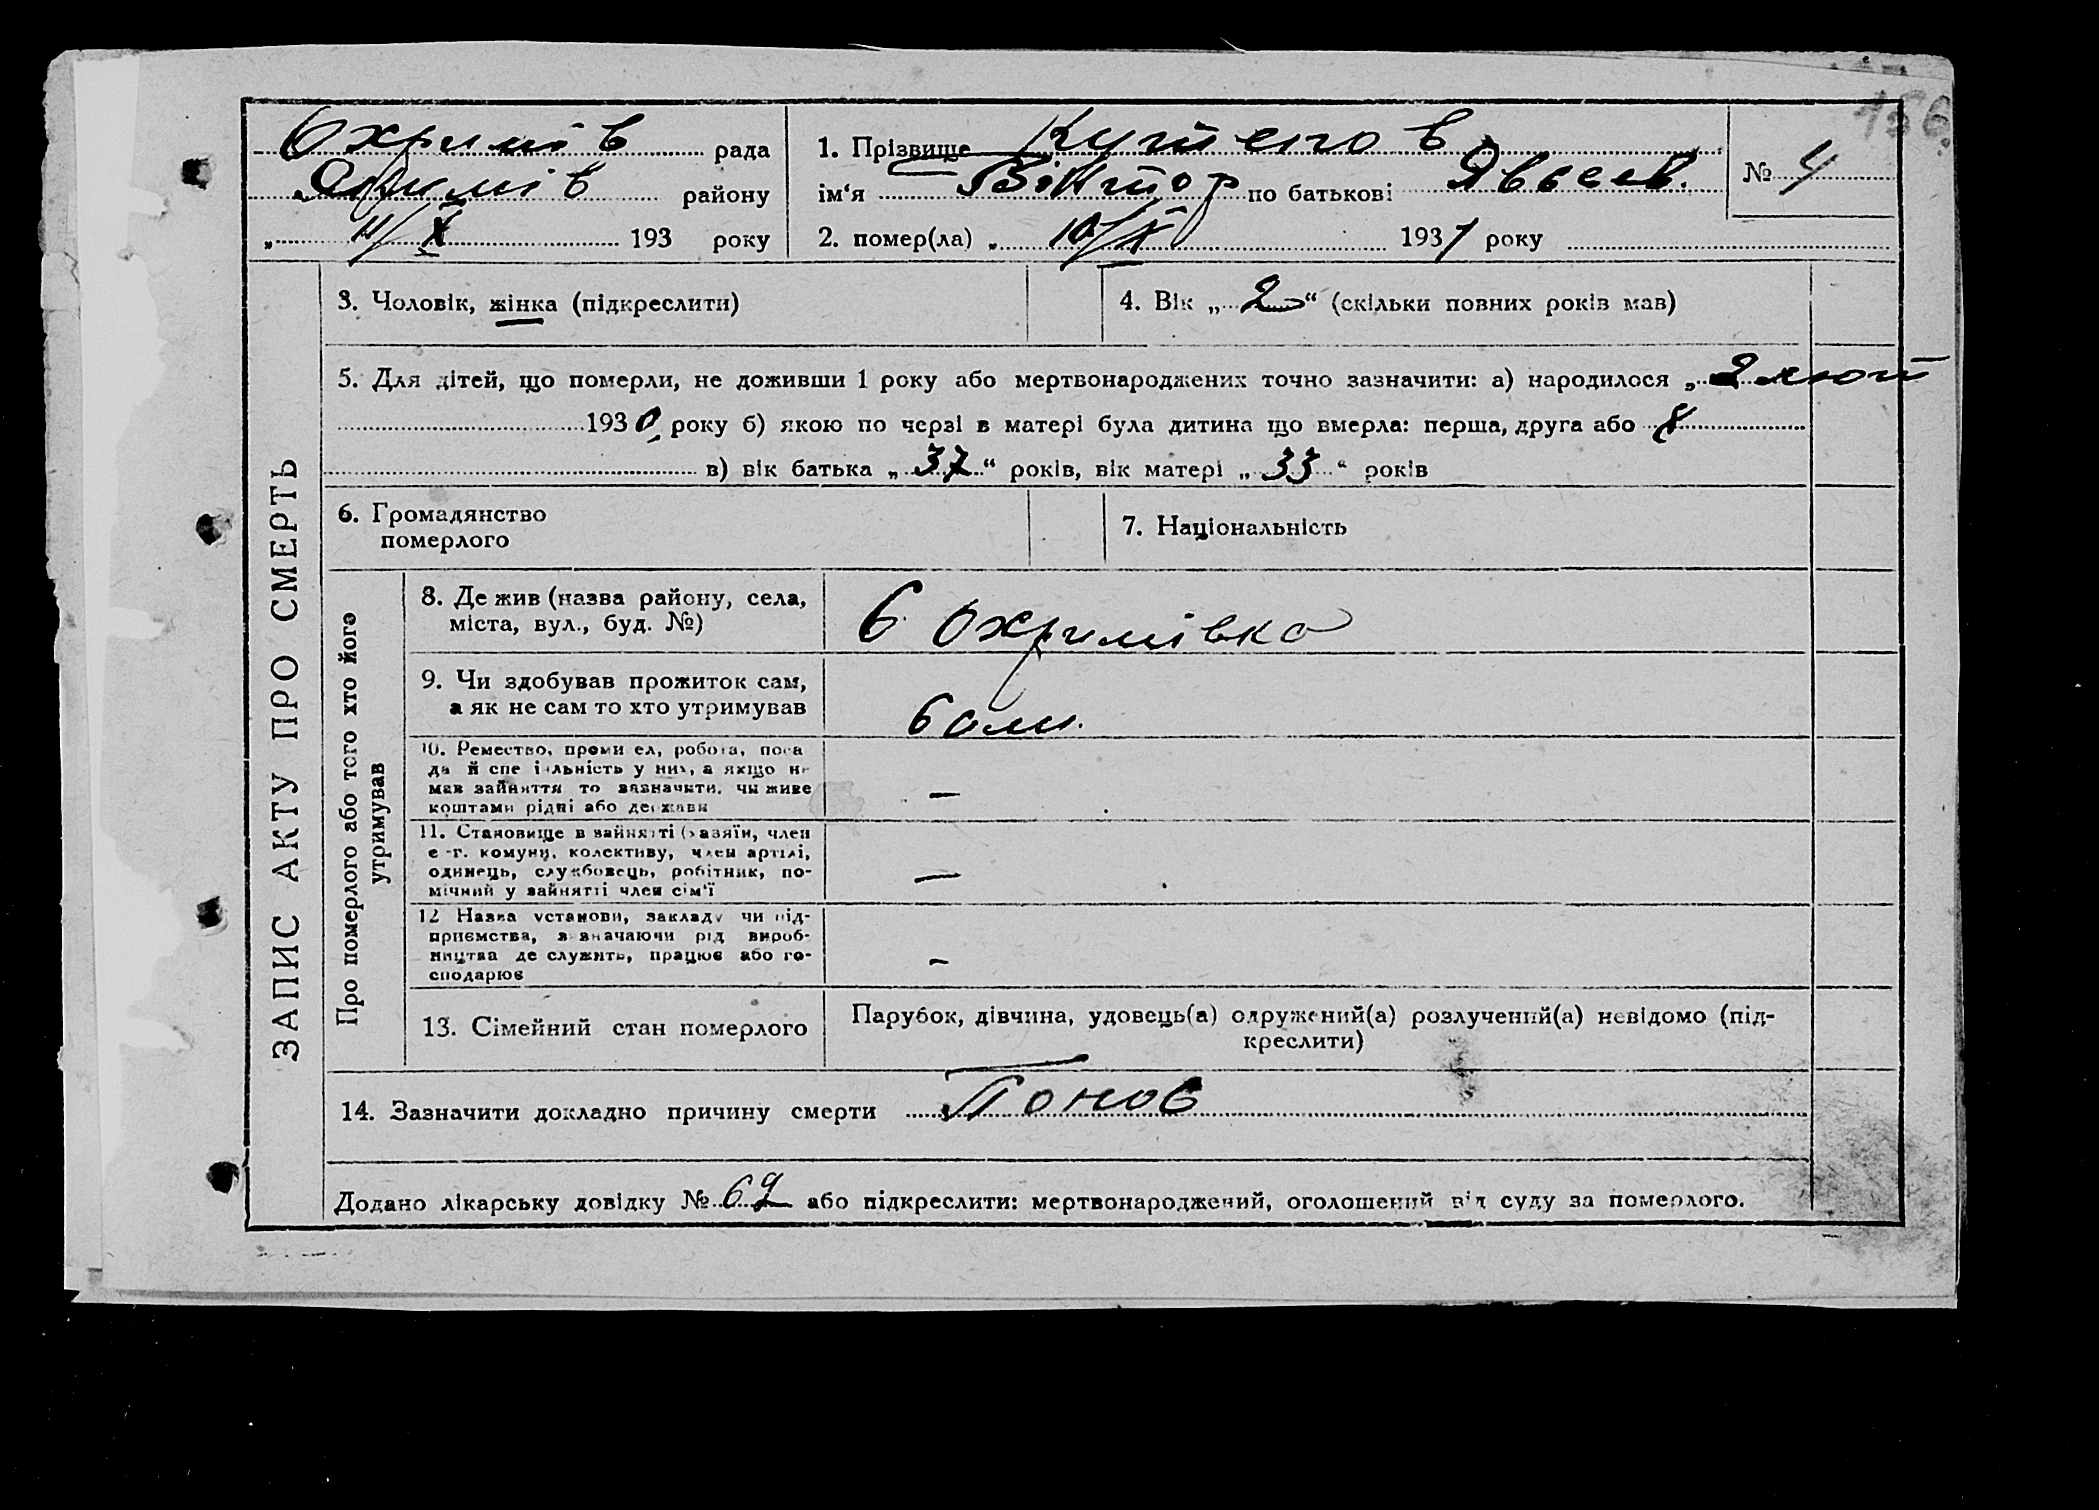 156
Охримів рада
Якимів району
„ 11/X 193 року
1. Прізвище Кутепов
ім‘я Віктор по батькові Явсеев.
2. помер(ла) „ 10/X 1931 року
№ 4
3. Чоловік, жінка (підкреслити)
4. Вік „ 2 “ (скільки повних років мав)
5. Для дітей, що померли, не доживши 1 року або мертвонароджених точно зазначити: а) народилося „ 2 лют
1930 року б) якою по черзі в матері була дитина що вмерла: перша, друга або 8
в) вік батька „ 37 “ років, вік матері „ 33 “ років
6. Громадянство
померлого
7. Національність
ЗАПИС АКТУ ПРО СМЕРТЬ
Про померлого або того хто його
утримував
8. Де жив (назва району, села,
міста, вул., буд. №)
с Охримівка
9. Чи здобував прожиток сам,
а як не сам то хто утримував
10. Ремество, промисел, робота, поса
да й спеціяльність у них, а якщо не
мав зайняття то зазначити, чи живе
коштами рідні або держави
—
11. Становище в зайнятті (хазяїн, член
с.-г. комуни, колективу, член артілі,
одинець, службовець, робітник, по-
мічний у зайнятті член сім‘ї
—
12 Назва установи, закладу чи під-
приємства, зазначаючи рід вироб-
ництва де служить, працює або го-
сподарює
—
13. Сімейний стан померлого
Парубок, дівчина, удовець(а) одружений(а) розлучений(а) невідомо (під-
креслити)
14. Зазначити докладно причину смерти Понос
Додано лікарську довідку № 69 або підкреслити: мертвонароджений, оголошений від суду за померлого.